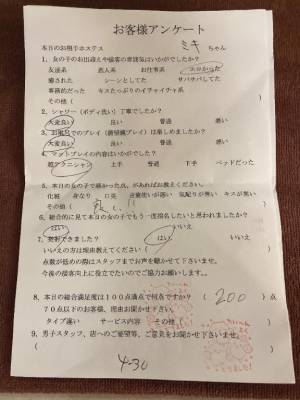 お客様アンケート
本日のお相手ホステス ミキ ちゃん
1、女の子のお出迎えや接客の雰囲気はいかがでしたか？
友達系 恋人系 お仕事系 エロかった
癒された シーンとしてた サバサバしてた
事務的だった キスたっぷりのイチャイチャ系
その他（ ）
2、シャワー（ボディ洗い）丁寧でしたか？
大変良い 良い 普通 悪い
3、お風呂でのプレイ（潜望鏡プレイ）は楽しめましたか？
大変良い 良い 普通 悪い
4、マットプレイの内容はいかがでした？
超テクニシャン 上手 普通 下手 ベッドだった
5、本日の女の子で悪かった点、があればお教えください。
化粧 身なり 口臭 言葉使いが悪い 気配りが無い キスが無い
その他（ 無し！！ ）
6、総合的に見て本日の女の子でもう一度指名したいと思われましたか？
はい いいえ
7、
はい いいえ
いいえの方は理由教えてください（ ）
点数が低めの際はスタッフまでお声を聴かせて下さいませ。
今後の接客向上に役立てたいのでご協力お願いします。
8、本日の総合満足度は１００点満点で何点ですか？（ 200 ）点
７０点以下のお客様、理由お聞かせ下さい。
タイプ違い サービス内容 その他（
9、男子スタッフ、店へのご要望等、ご意見をお聞かせ下さいませ！
4-30